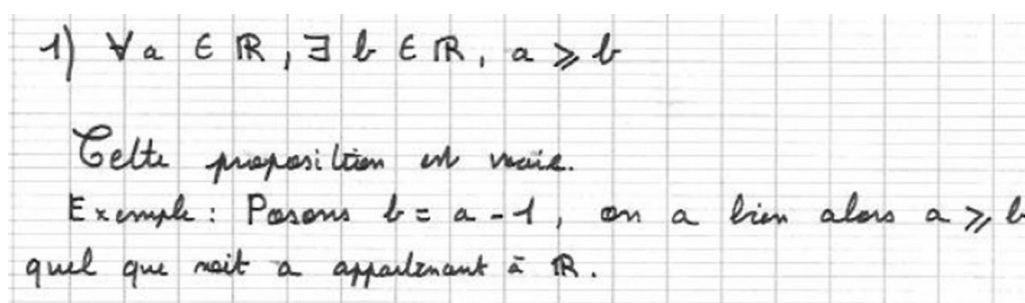 1) ∀a ∈ ℝ, ∃ b ∈ ℝ, a ⩾ b
Cette proposition est vraie.
Exemple : Posons b = a - 1, on a bien alors a ⩾ b
quel que soit a appartenant à ℝ.